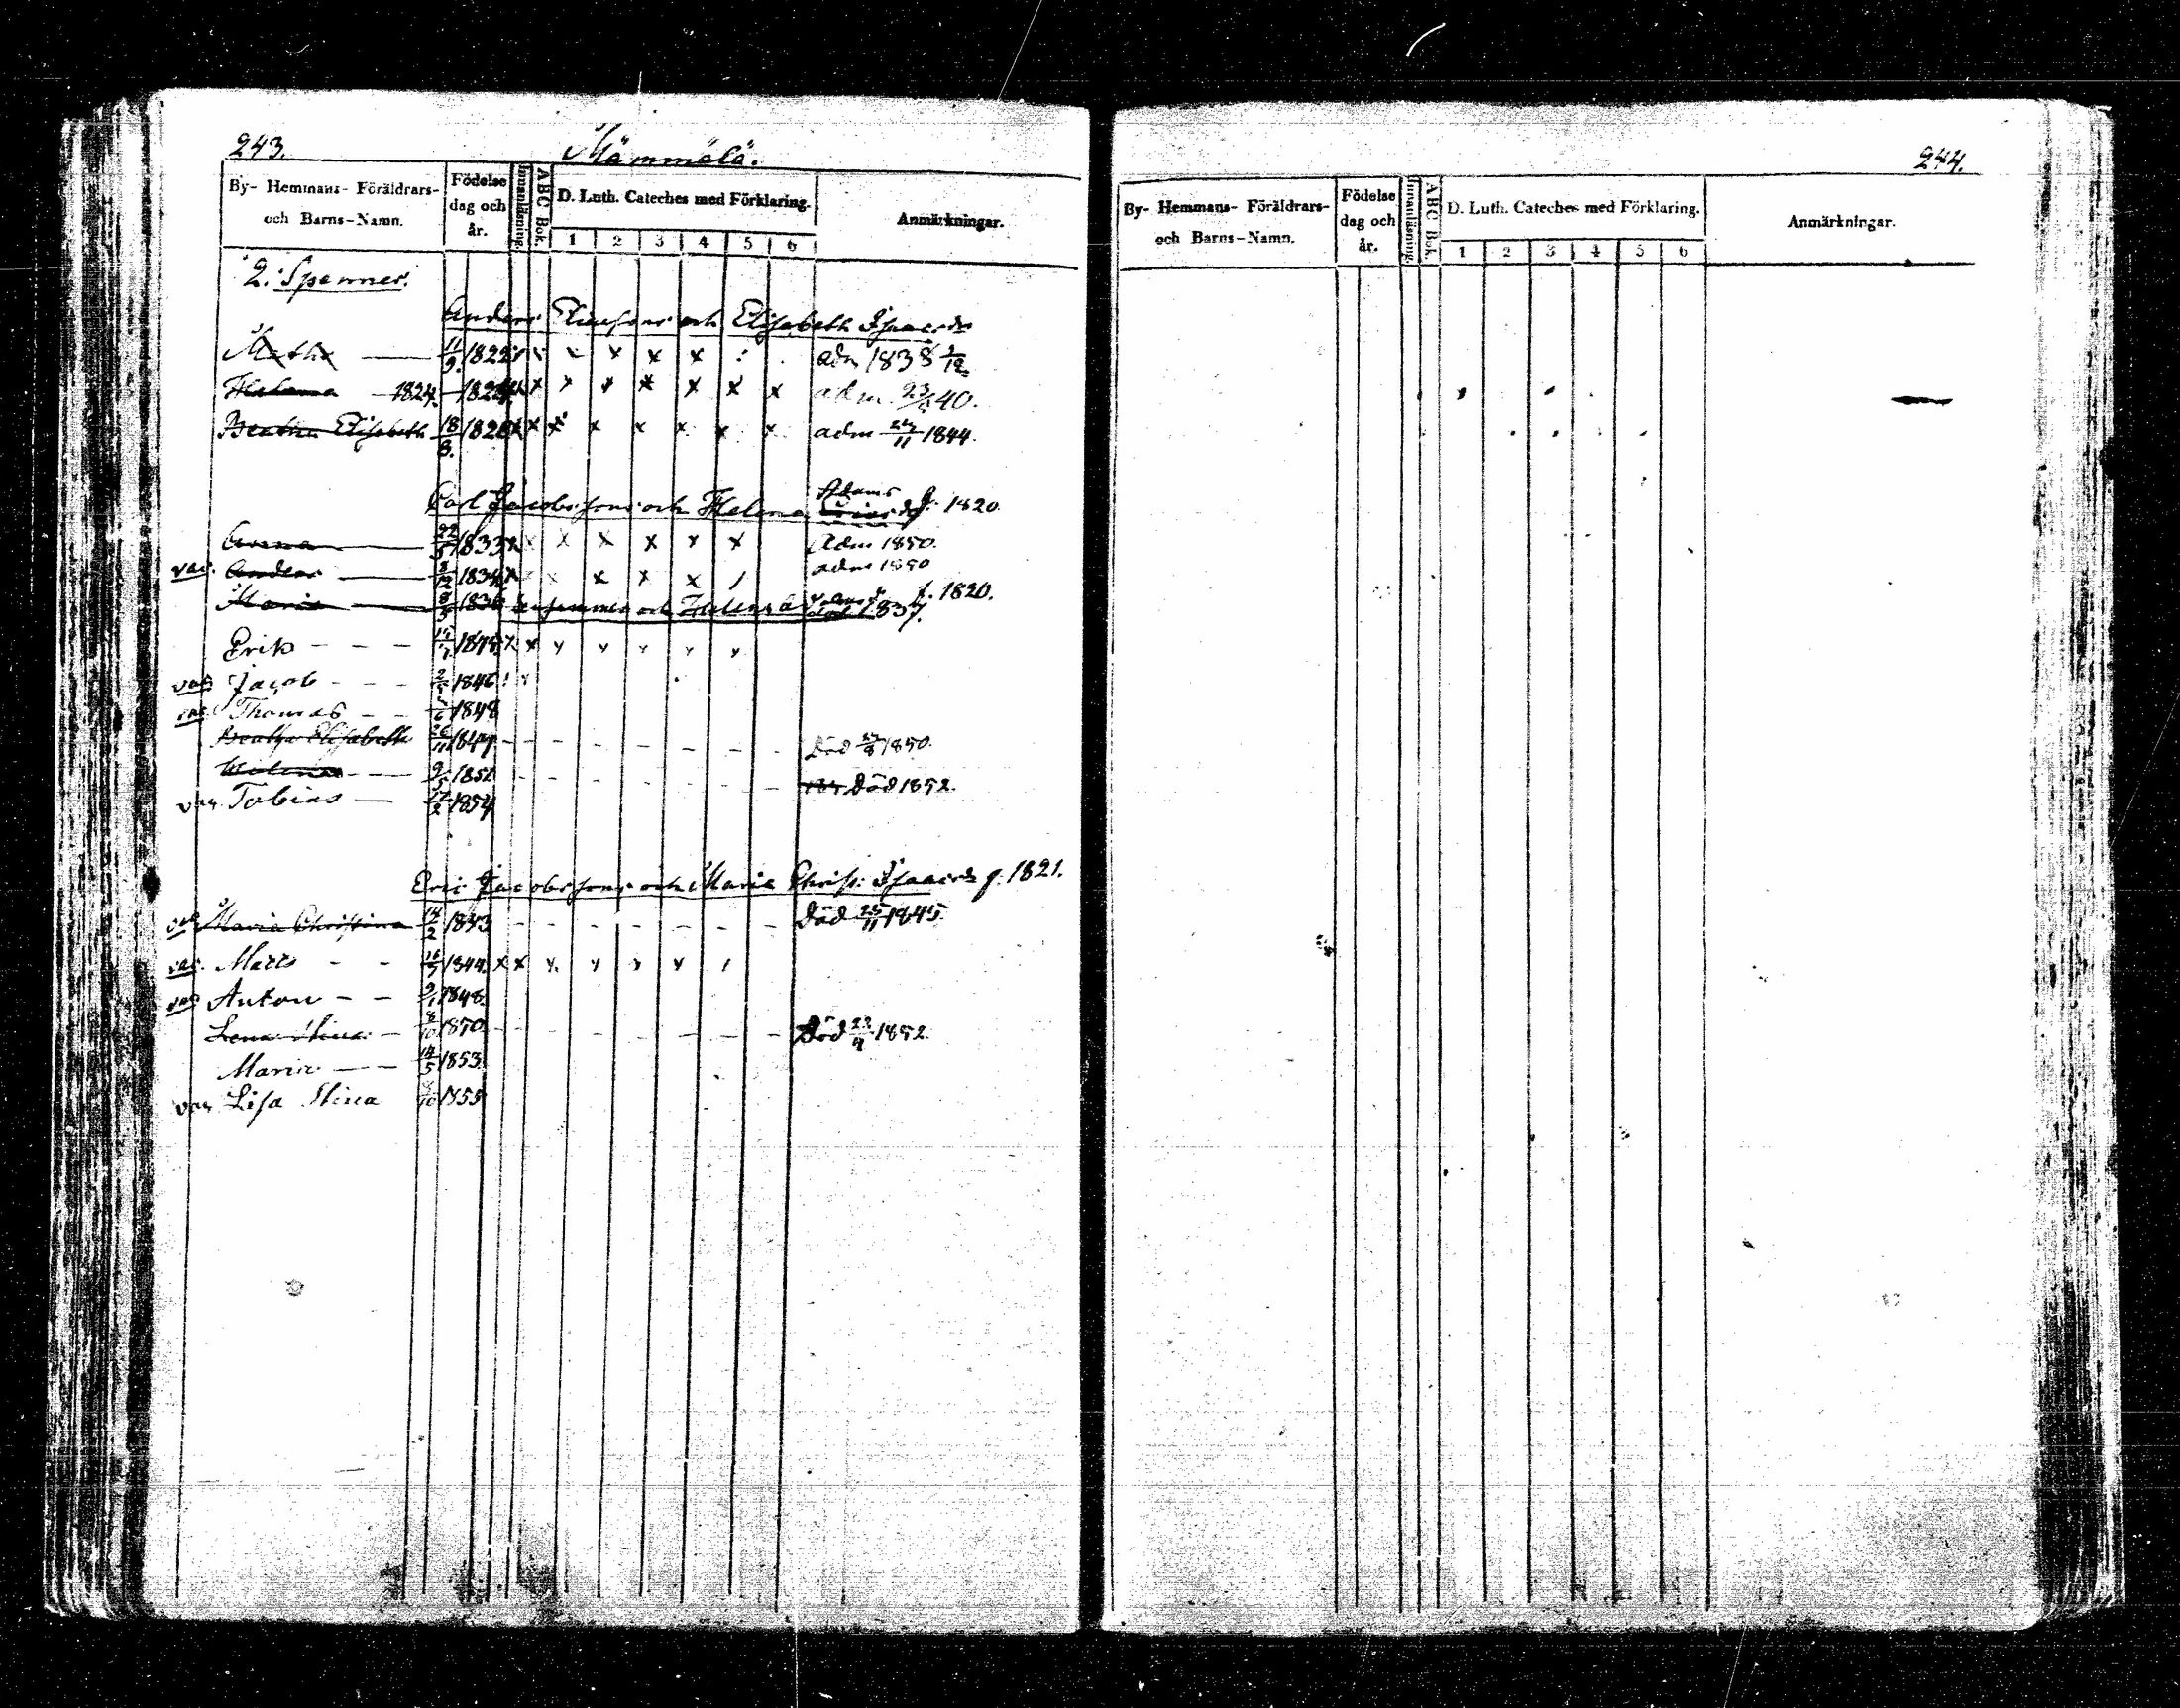 243.
Mämmälä.
By- Hemmans- Föräldrars- och Barns-Namn.
Födelse dag och år.
Innanläsning.
ABC Bok.
D. Luth. Cateches med Förklaring.
1 2 3 4 5 6
Anmärkningar.
2. Spänner.
Anders och Elisabeth Isaacsdr
11/9 1822 x x x adm 1838
Helena 1824. 1824 x x x x x x x adm. 40.
Beatha Elisabeth 18/8. x x x x x x x x adm 24/11 1844.
Carl Jacobsson och Helena Adams f. 1820.
Anna 22/5 1833 x x x x x x Adm 1850.
var. Anders 8/12 1834 x x x x x adm 1850
Maria 1836 och Helena f. 1820. död 1837.
Erik - - - 1845 x x x x x x x
var Jacob - - - 1846
var. Thomas - - 1848
Beatha Elisabeth 1847 - - - - - - - Död 1850.
9/5 1852 - - - - - - - Död 1852.
var Tobias - 17/2 1854
Eric Jacobsson och Maria Chris: Isaacsdr f. 1821.
Maria Christina 14/2 1843 - - - - - - - Död 25/11 1845.
var. Matts - - 1844 x x x x x x
var Anton - - 9/1 1848.
Lena Stina - 8/10 1850 - - - - - - - Död 1852.
Maria - - 14/5 1853.
var Lisa Stina 8/10 1855
244.
By- Hemmans- Föräldrars- och Barns-Namn.
Födelse dag och år.
Innanläsning.
ABC Bok.
D. Luth. Cateches med Förklaring.
1 2 3 4 5 6
Anmärkningar.